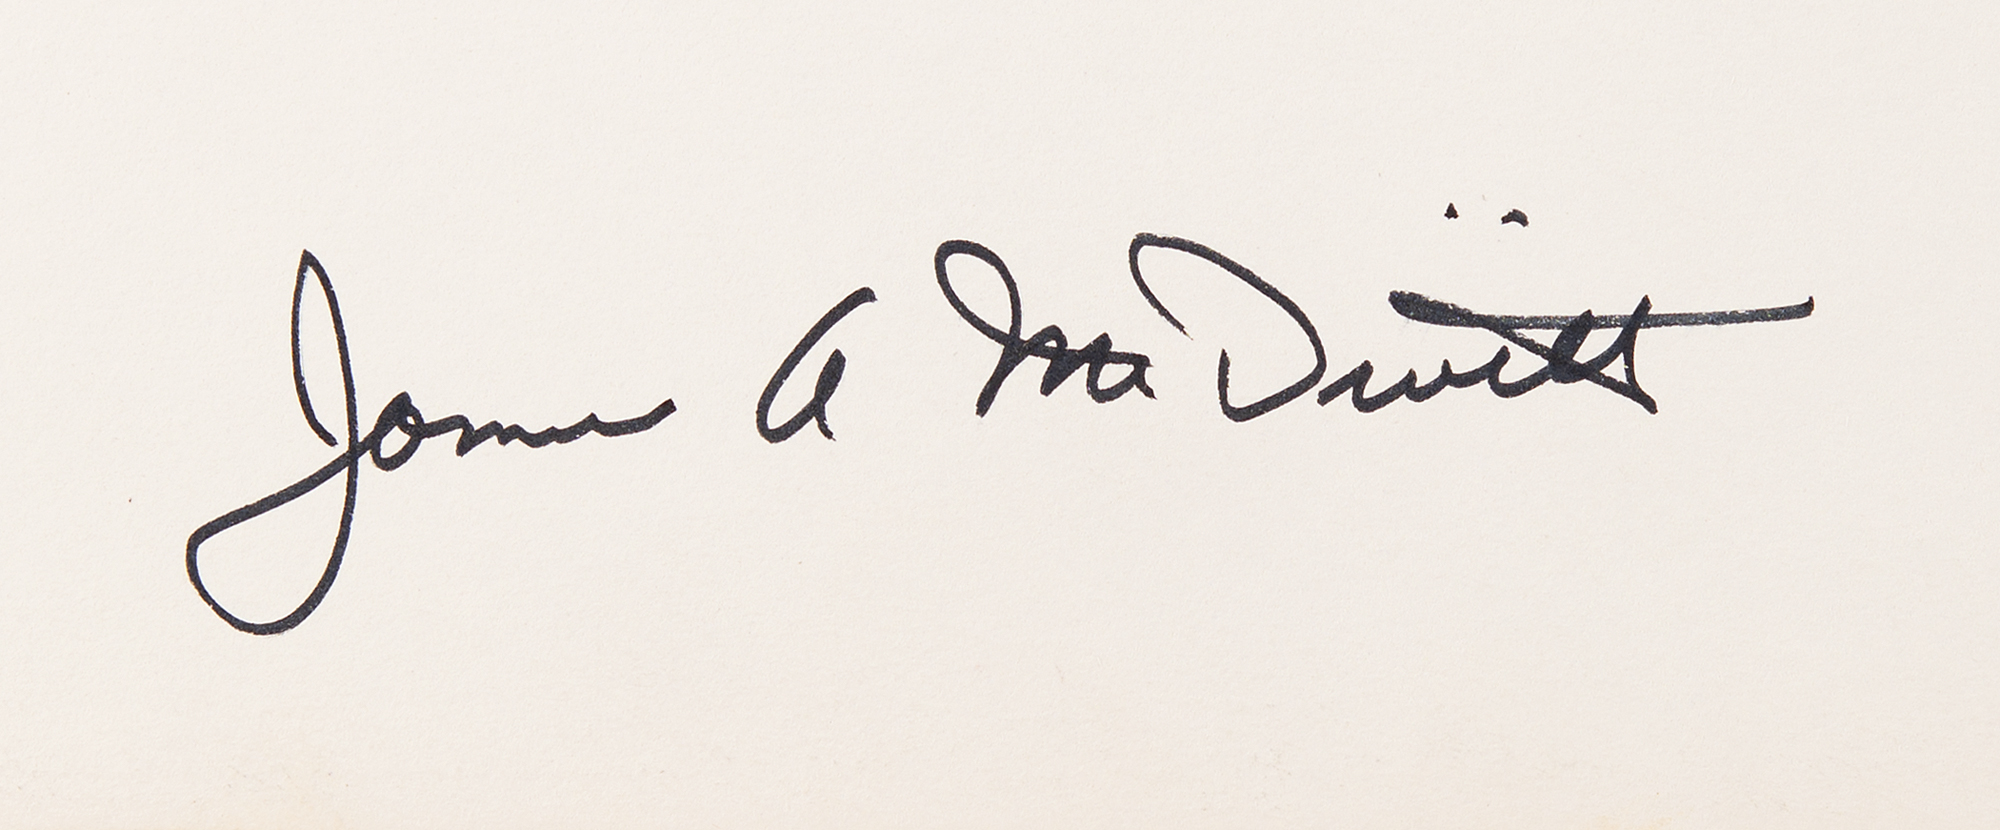 James A McDivitt